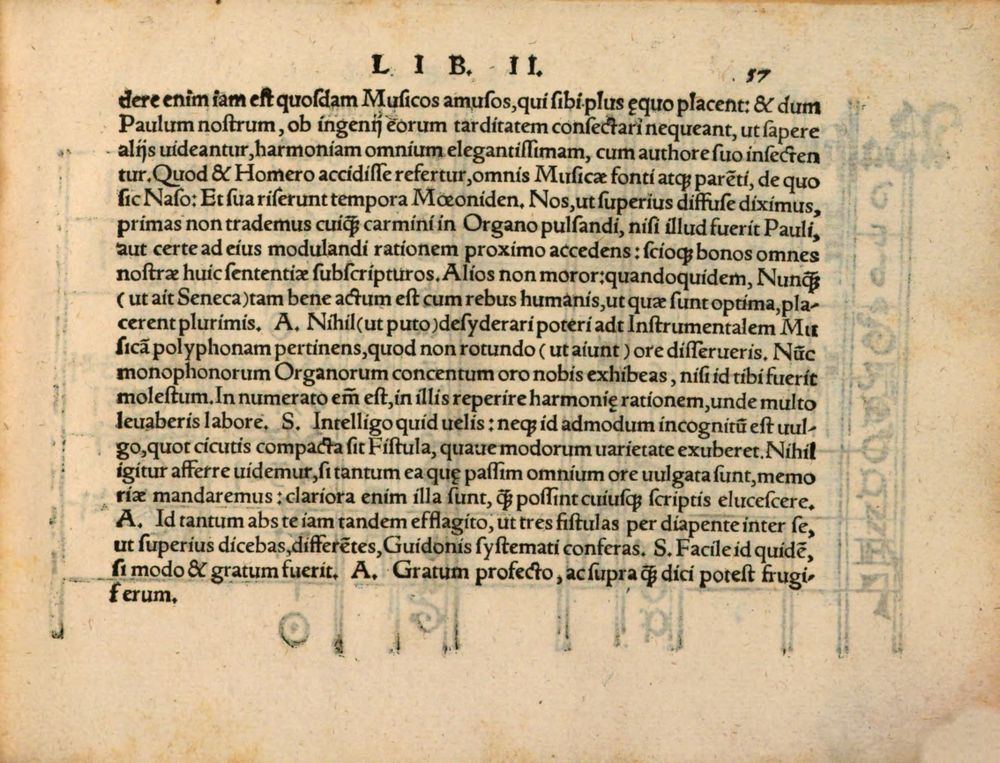 LIB. II. 57
dere enim iam est quosdam Musicos amusos, qui sibi plus ęquo placent: & dum
Paulum nostrum, ob ingenij eorum tarditatem consectari nequeant, ut sapere
alijs uideantur, harmoniam omnium elegantissimam, cum authore suo insecten
tur. Quod & Homero accidisse refertur, omnis Musicæ fonti atqꝫ parẽti, de quo
sic Naso: Et sua riserunt tempora Mœoniden. Nos, ut superius diffuse diximus,
primas non trademus cuiqꝫ carmini in Organo pulsandi, nisi illud fuerit Pauli,
aut certe ad eius modulandi rationem proximo accedens: scioqꝫ bonos omnes
nostræ huic sententiæ subscripturos. Alios non moror: quandoquidem, Nunꝙ̃
(ut ait Seneca) tam bene actum est cum rebus humanis, ut quæ sunt optima, pla-
cerent plurimis. A. Nihil (ut puto) desyderari poteri adt Instrumentalem Mu
sicã polyphonam pertinens, quod non rotundo (ut aiunt) ore disserueris. Nũc
monophonorum Organorum concentum oro nobis exhibeas, nisi id tibi fuerit
molestum. In numerato em̃ est, in illis reperire harmonię rationem, unde multo
leuaberis labore. S. Intelligo quid uelis: neqꝫ id admodum incognitũ est uul-
go, quot cicutis compacta sit Fistula, quaue modorum uarietate exuberet. Nihil
igitur afferre uidemur, si tantum ea quę passim omnium ore uulgata sunt, memo
riæ mandaremus: clariora enim illa sunt, ꝙ̃ possint cuiusqꝫ scriptis elucescere.
A. Id tantum abs te iam tandem efflagito, ut tres fistulas per diapente inter se,
ut superius dicebas, differẽtes, Guidonis systemati conferas. S. Facile id quidẽ,
si modo & gratum fuerit. A. Gratum profecto, ac supra ꝙ̃ dici potest frugi-
ferum.